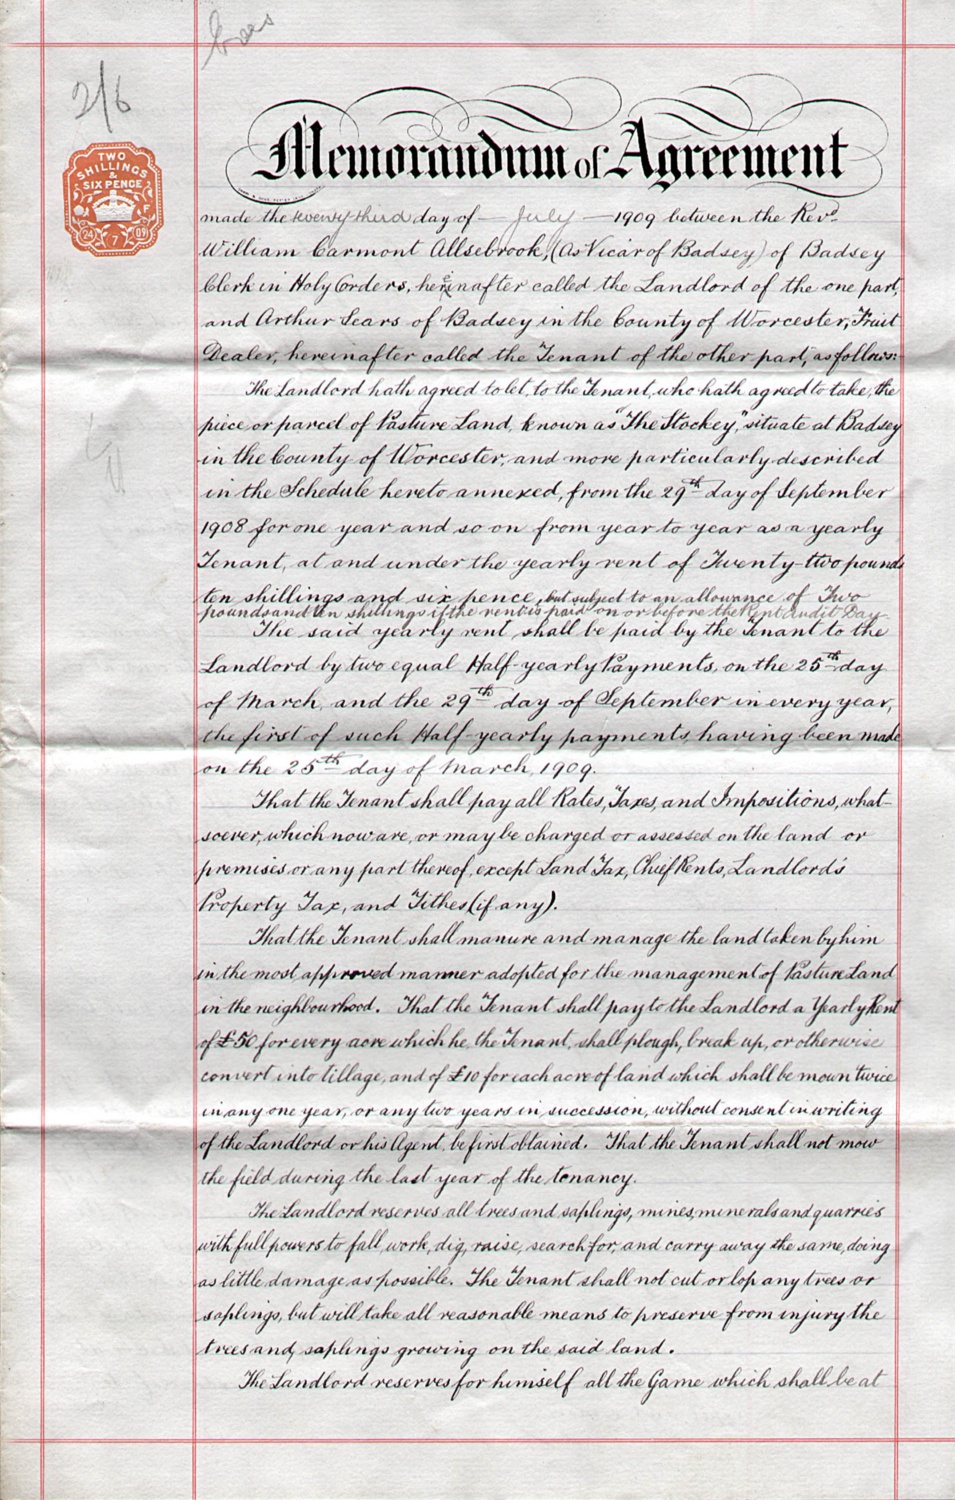 2/6
TWO
SHILLINGS
&
SIX PENCE
24 7 09
Memorandum of Agreement
made the twenty third day of — July — 1909 between the Revd.
William Carmont Allsebrook, (As Vicar of Badsey) of Badsey
Clerk in Holy Orders, hereinafter called the Landlord of the one part,
and Arthur Sears of Badsey in the County of Worcester, Fruit
Dealer, hereinafter called the Tenant of the other part, as follows:-
The Landlord hath agreed to let, to the Tenant, who hath agreed to take, the
piece or parcel of Pasture Land, known as "The Stockey," situate at Badsey
in the County of Worcester, and more particularly described
in the Schedule hereto annexed, from the 29th day of September
1908 for one year and so on from year to year as a yearly
Tenant, at and under the yearly rent of Twenty-two pounds
ten shillings and six pence, but subject to an allowance of Two
pounds and ten shillings if the rent is paid on or before the Rent Audit Day.
The said yearly rent, shall be paid by the Tenant to the
Landlord by two equal Half-yearly Payments, on the 25th day
of March, and the 29th day of September in every year,
the first of such Half-yearly payments, having been made
on the 25th day of March, 1909.
That the Tenant shall pay all Rates, Taxes, and Impositions, what-
soever, which now are, or may be charged or assessed on the land or
premises or any part thereof, except Land Tax, Chief Rents, Landlord's
Property Tax, and Tithes (if any).
That the Tenant shall manure and manage the land taken by him
in the most approved manner adopted for the management of Pasture Land
in the neighbourhood. That the Tenant shall pay to the Landlord a Yearly Rent
of £50 for every acre which he, the Tenant, shall plough, break up, or otherwise
convert into tillage, and of £10 for each acre of land which shall be mown twice
in any one year, or any two years in succession, without consent in writing
of the Landlord or his Agent, be first obtained. That the Tenant shall not mow
the field during the last year of the tenancy.
The Landlord reserves all trees and saplings, mines, minerals and quarries
with full powers to fall, work, dig, raise, search for, and carry away the same, doing
as little damage as possible. The Tenant shall not cut or lop any trees or
saplings, but will take all reasonable means to preserve from injury the
trees and saplings growing on the said land.
The Landlord reserves for himself all the Game which shall be at